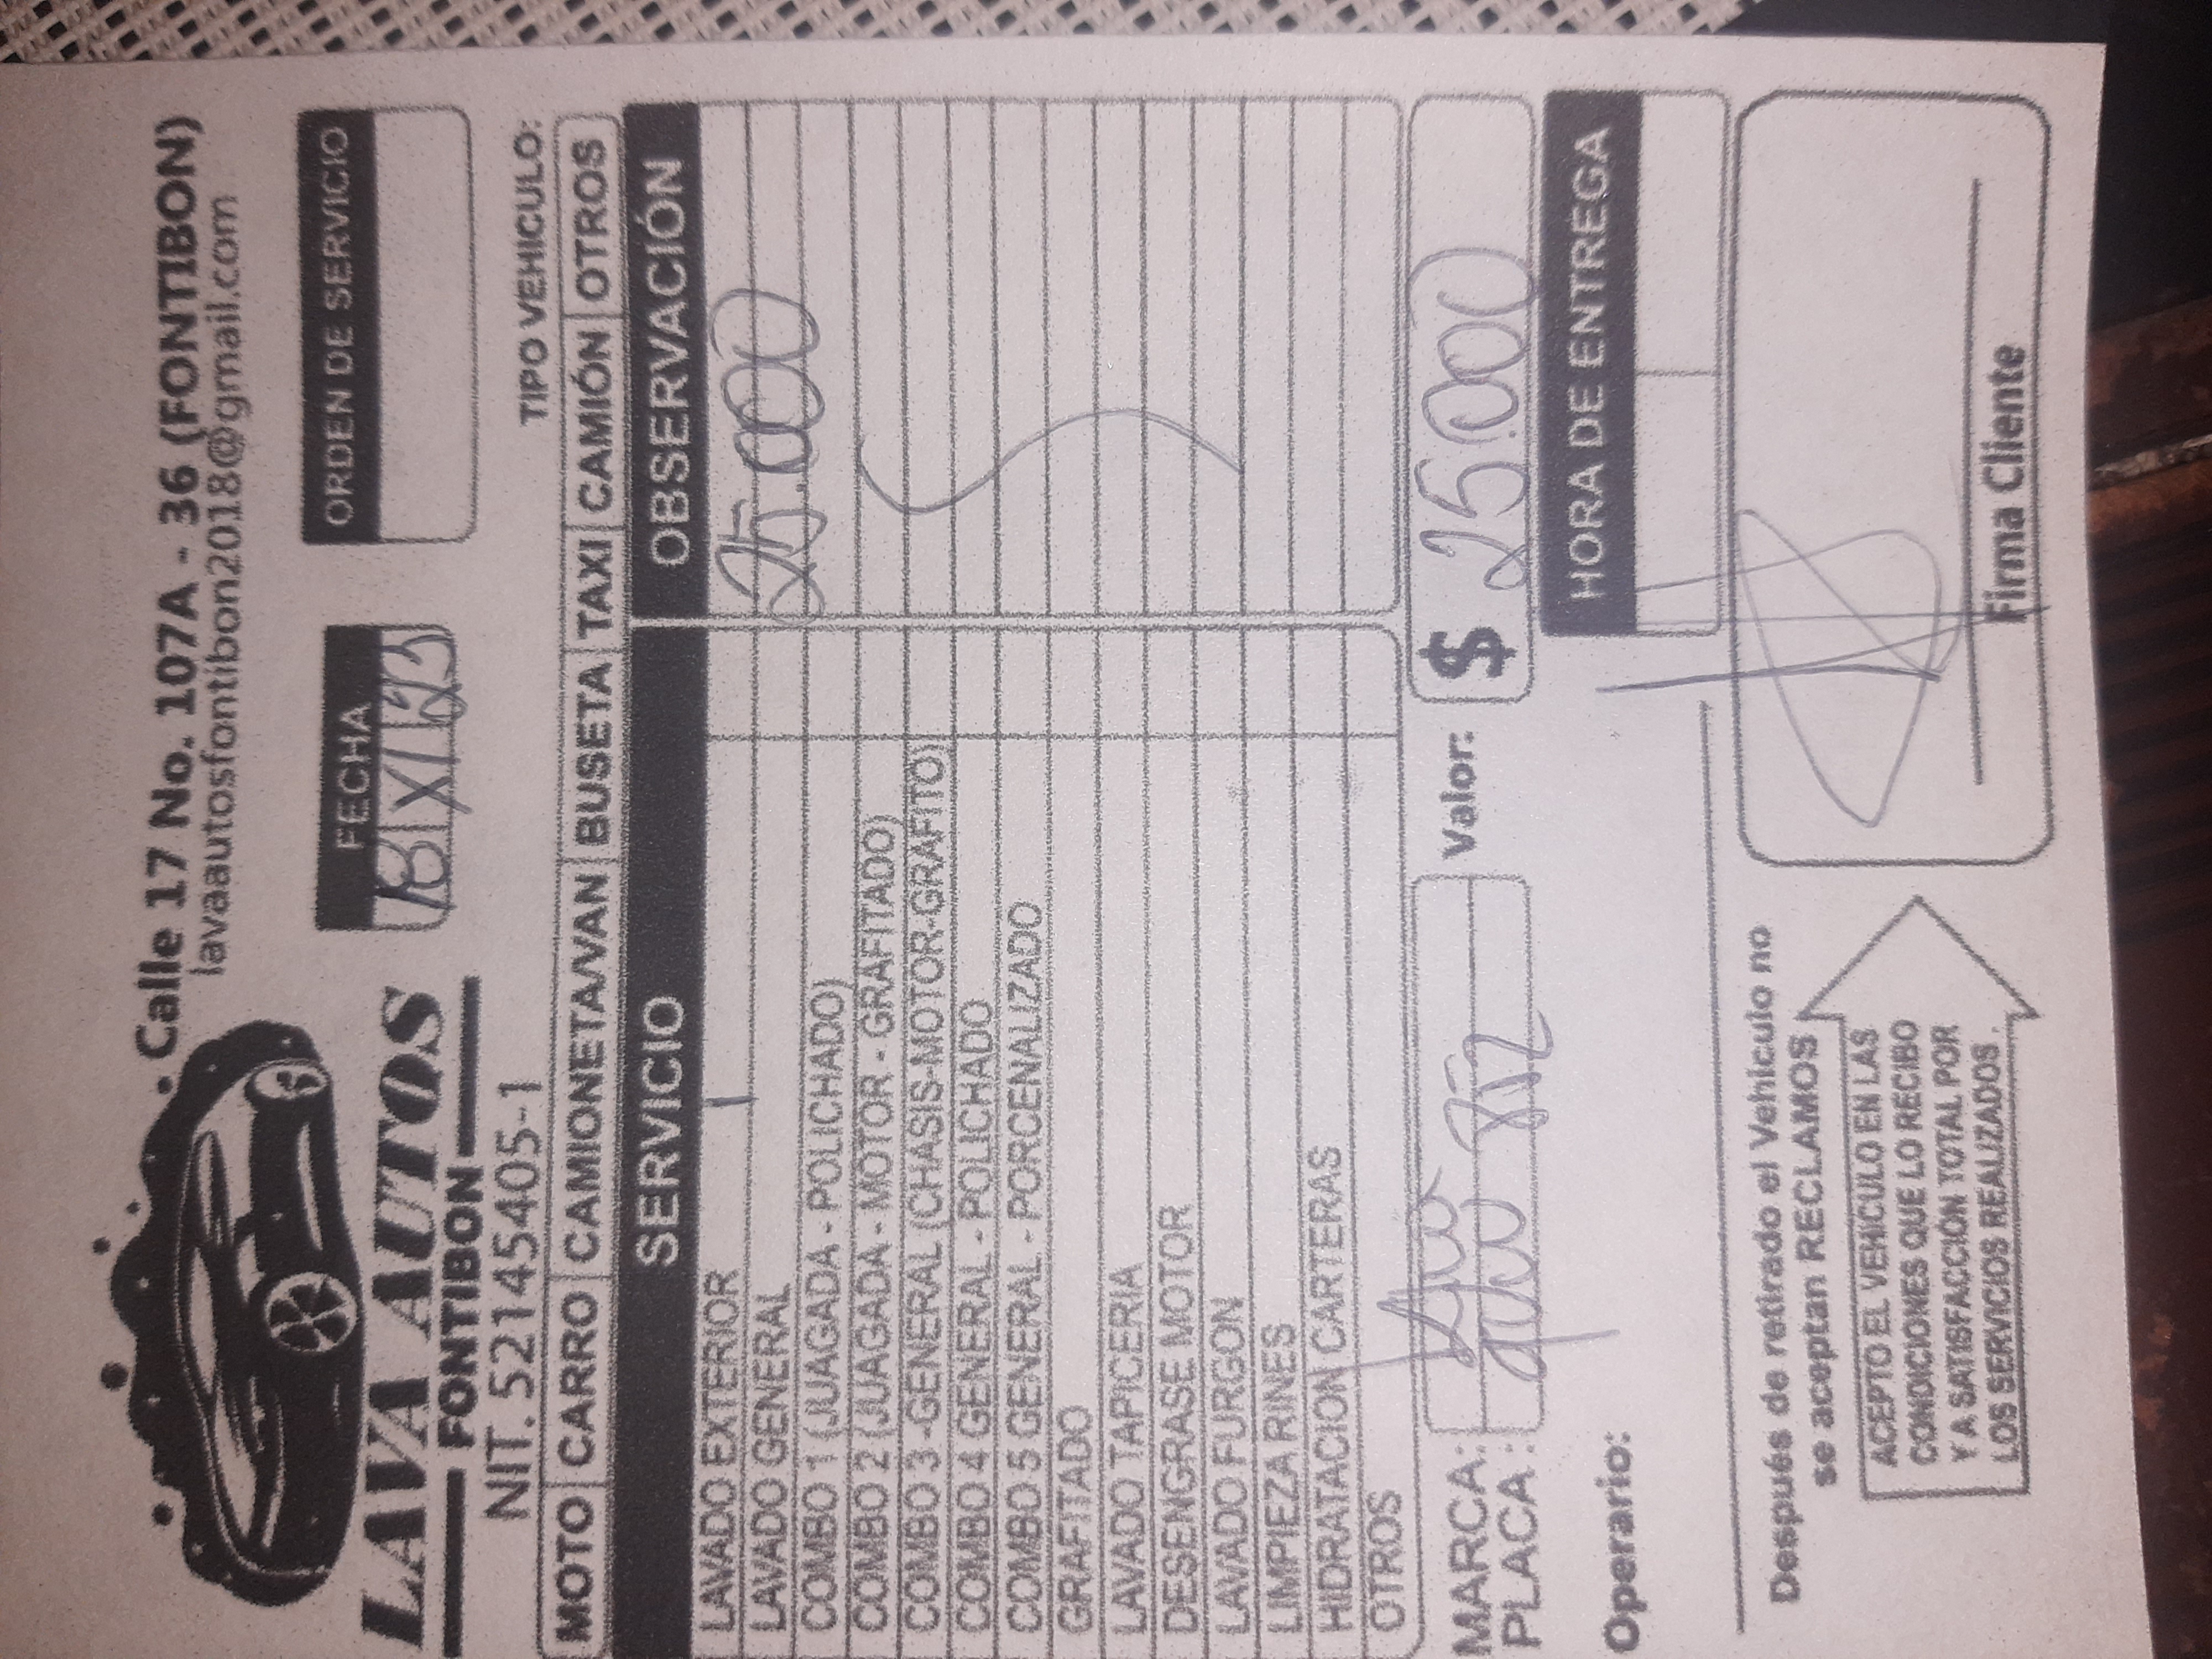 Calle 17 No. 107A - 36 (FONTIBON)
lavaautosfontibon2018@gmail.com
LAVA AUTOS
FONTIBON
NIT. 52145405-1
FECHA
18 XI 23
ORDEN DE SERVICIO
TIPO VEHICULO:
MOTO CARRO CAMIONETA/VAN BUSETA TAXI CAMIÓN OTROS
SERVICIO OBSERVACIÓN
LAVADO EXTERIOR 25.000
LAVADO GENERAL
COMBO 1 (JUAGADA - POLICHADO)
COMBO 2 (JUAGADA - MOTOR - GRAFITADO)
COMBO 3 -GENERAL (CHASIS-MOTOR-GRAFITO)
COMBO 4 GENERAL - POLICHADO
COMBO 5 GENERAL - PORCENALIZADO
GRAFITADO
LAVADO TAPICERIA
DESENGRASE MOTOR
LAVADO FURGON
LIMPIEZA RINES
HIDRATACION CARTERAS
OTROS
MARCA:
PLACA:
Valor: $ 25.000
Operario:
HORA DE ENTREGA
Después de retirado el Vehiculo no
se aceptan RECLAMOS
ACEPTO EL VEHICULO EN LAS
CONDICIONES QUE LO RECIBO
Y A SATISFACCIÓN TOTAL POR
LOS SERVICIOS REALIZADOS.
Firma Cliente